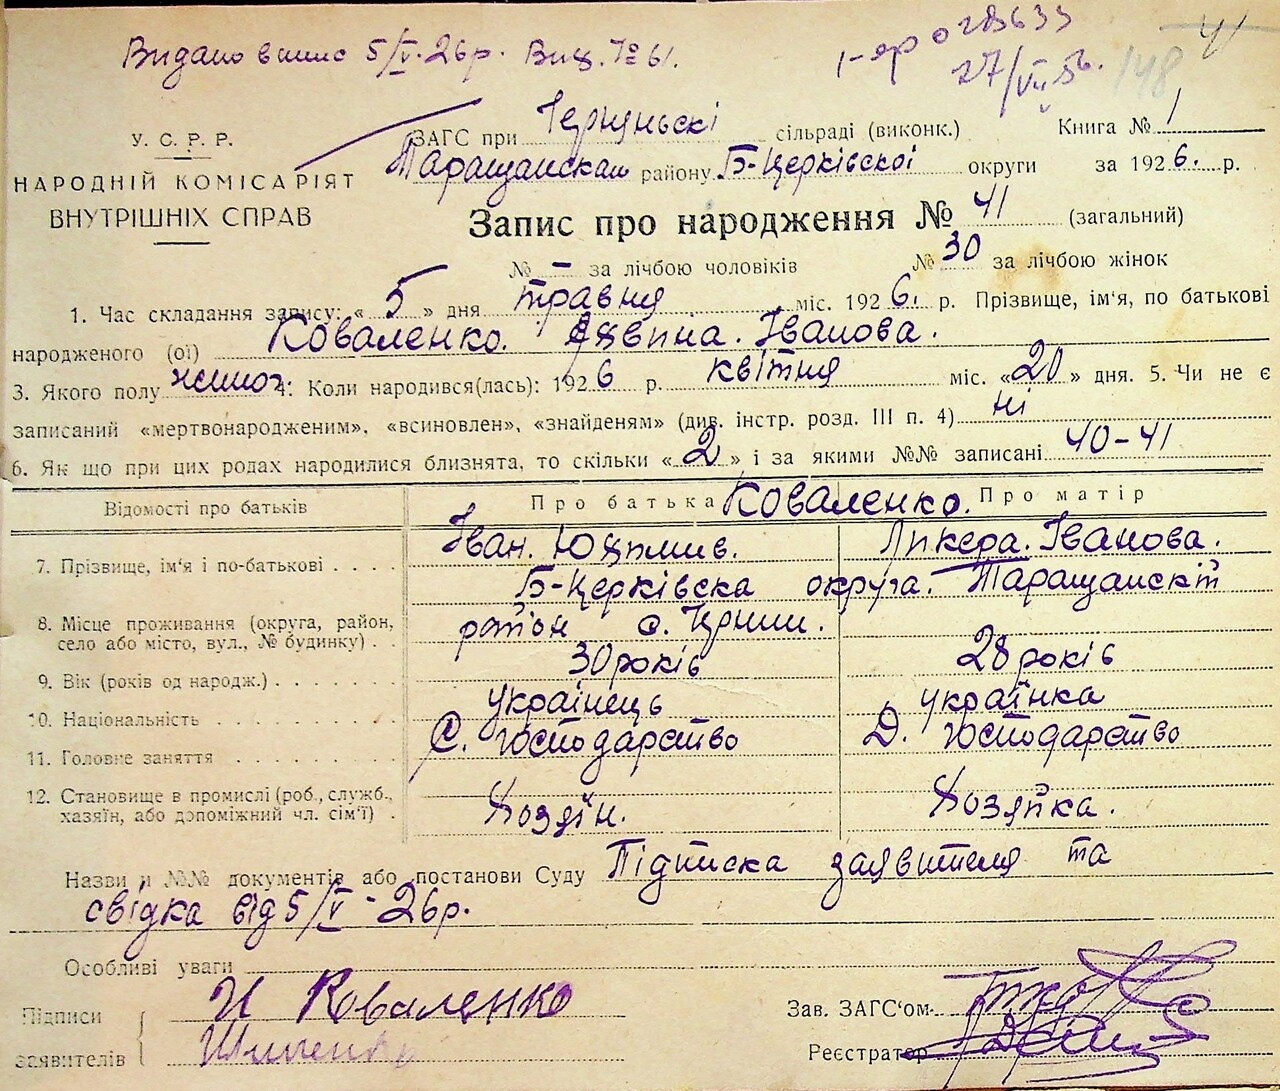 Видано випис 5/V-26р. Вищ. № 61.
1-яр о 283633
27/VII 56.
148
41
У. С. Р. Р.
НАРОДНІЙ КОМІСАРІЯТ
ВНУТРІШНІХ СПРАВ
ЗАГС при сільраді (виконк.) Книга № 1
району Б-Церківскої округи за 1926. р.
Запис про народження № 41 (загальний)
№ – за лічбою чоловіків № 30 за лічбою жінок
1. Час складання запису: « 5 » дня травня міс. 1926. р. Прізвище, ім'я, по батькові
народженого (ої) Коваленко. Іванова.
3. Якого полу жіноч. 4: Коли народився(лась): 1926 р. квітня міс. «20» дня. 5. Чи не є
записаний «мертвонародженим», «всиновлен», «знайденям» (див. інстр. розд. III п. 4) ні
6. Як що при цих родах народилися близнята, то скільки «2» і за якими №№ записані 40-41
Відомості про батьків Про батька Коваленко. Про матір
7. Прізвище, ім'я і по-батькові . . . . Іван. Ликера. Іванова.
Б-Церківска округа. Таращанскій
8. Місце проживання (округа, район,
село або місто, вул., № будинку) . . район с.
9. Вік (років од народж.) . . . . . . . 30 років 28 років
10. Національність . . . . . . . українець українка
11. Головне заняття . . . . . . . С. господарство Д. господарство
12. Становище в промислі (роб., служб.,
хазяїн, або допоміжний чл. сім'ї) . Хозяїн. Хозяйка.
Назви и №№ документів або постанови Суду Підписка заявителя та
свідка від 5/V-26р.
Особливі уваги
Підписи
заявителів
И Коваленко
Зав. ЗАГС'ом
Реєстратор